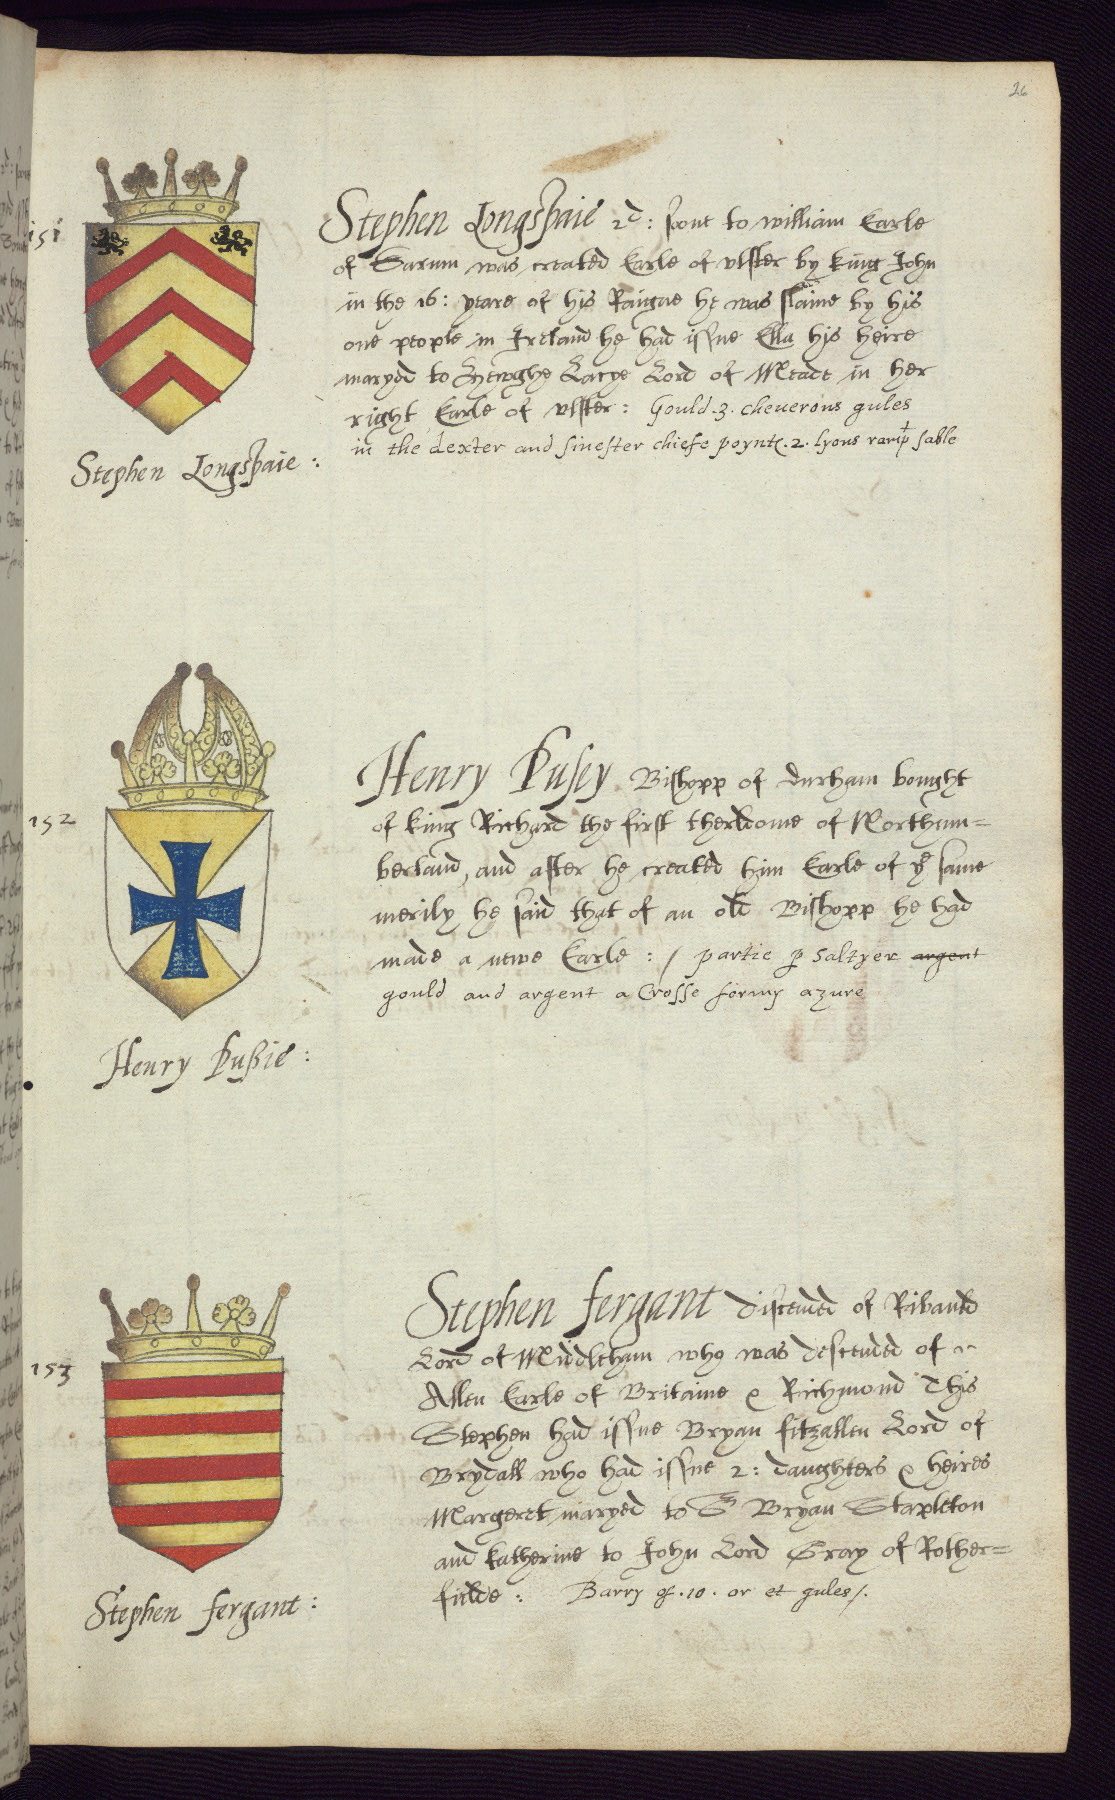 26
151
Stephen Longspaie 2d: sonne to william Earle
of Sarum was created Earle of vlster by king John
in the 16: yeare of his Raigne he was slaine by his
one people in Ireland he had issue Ella his heire
maryed to Hewghe Lacye Lord of Meade in her
right Earle of vlster: Gould .3. cheuerons gules
in the dexter and sinester chiefe poynte .2. lyons ramp sable
Stephen Longspaie :
152
Henry Pusey Bishopp of durham bought
of king Richard the first therldome of Northum=
berland, and after he created him Earle of ye same
merily he said that of an old Bishopp he had
made a newe Earle : / partie p Saltyer argent
gould and argent a Crosse formy azure
Henry Pusie :
153
Stephen fergant discended of Ribauld
Lord of Middleham who was descended of
Allen Earle of Britaine & Richmond This
Stephen had issue Bryan fitzallen Lord of
Brydall who had issue 2: daughters & heires
Margeret maryed to Sr Bryan Stapleton
and katherine to John Lord Gray of Rother=
fielde : Barry of .10. or et gules /.
Stephen fergant :